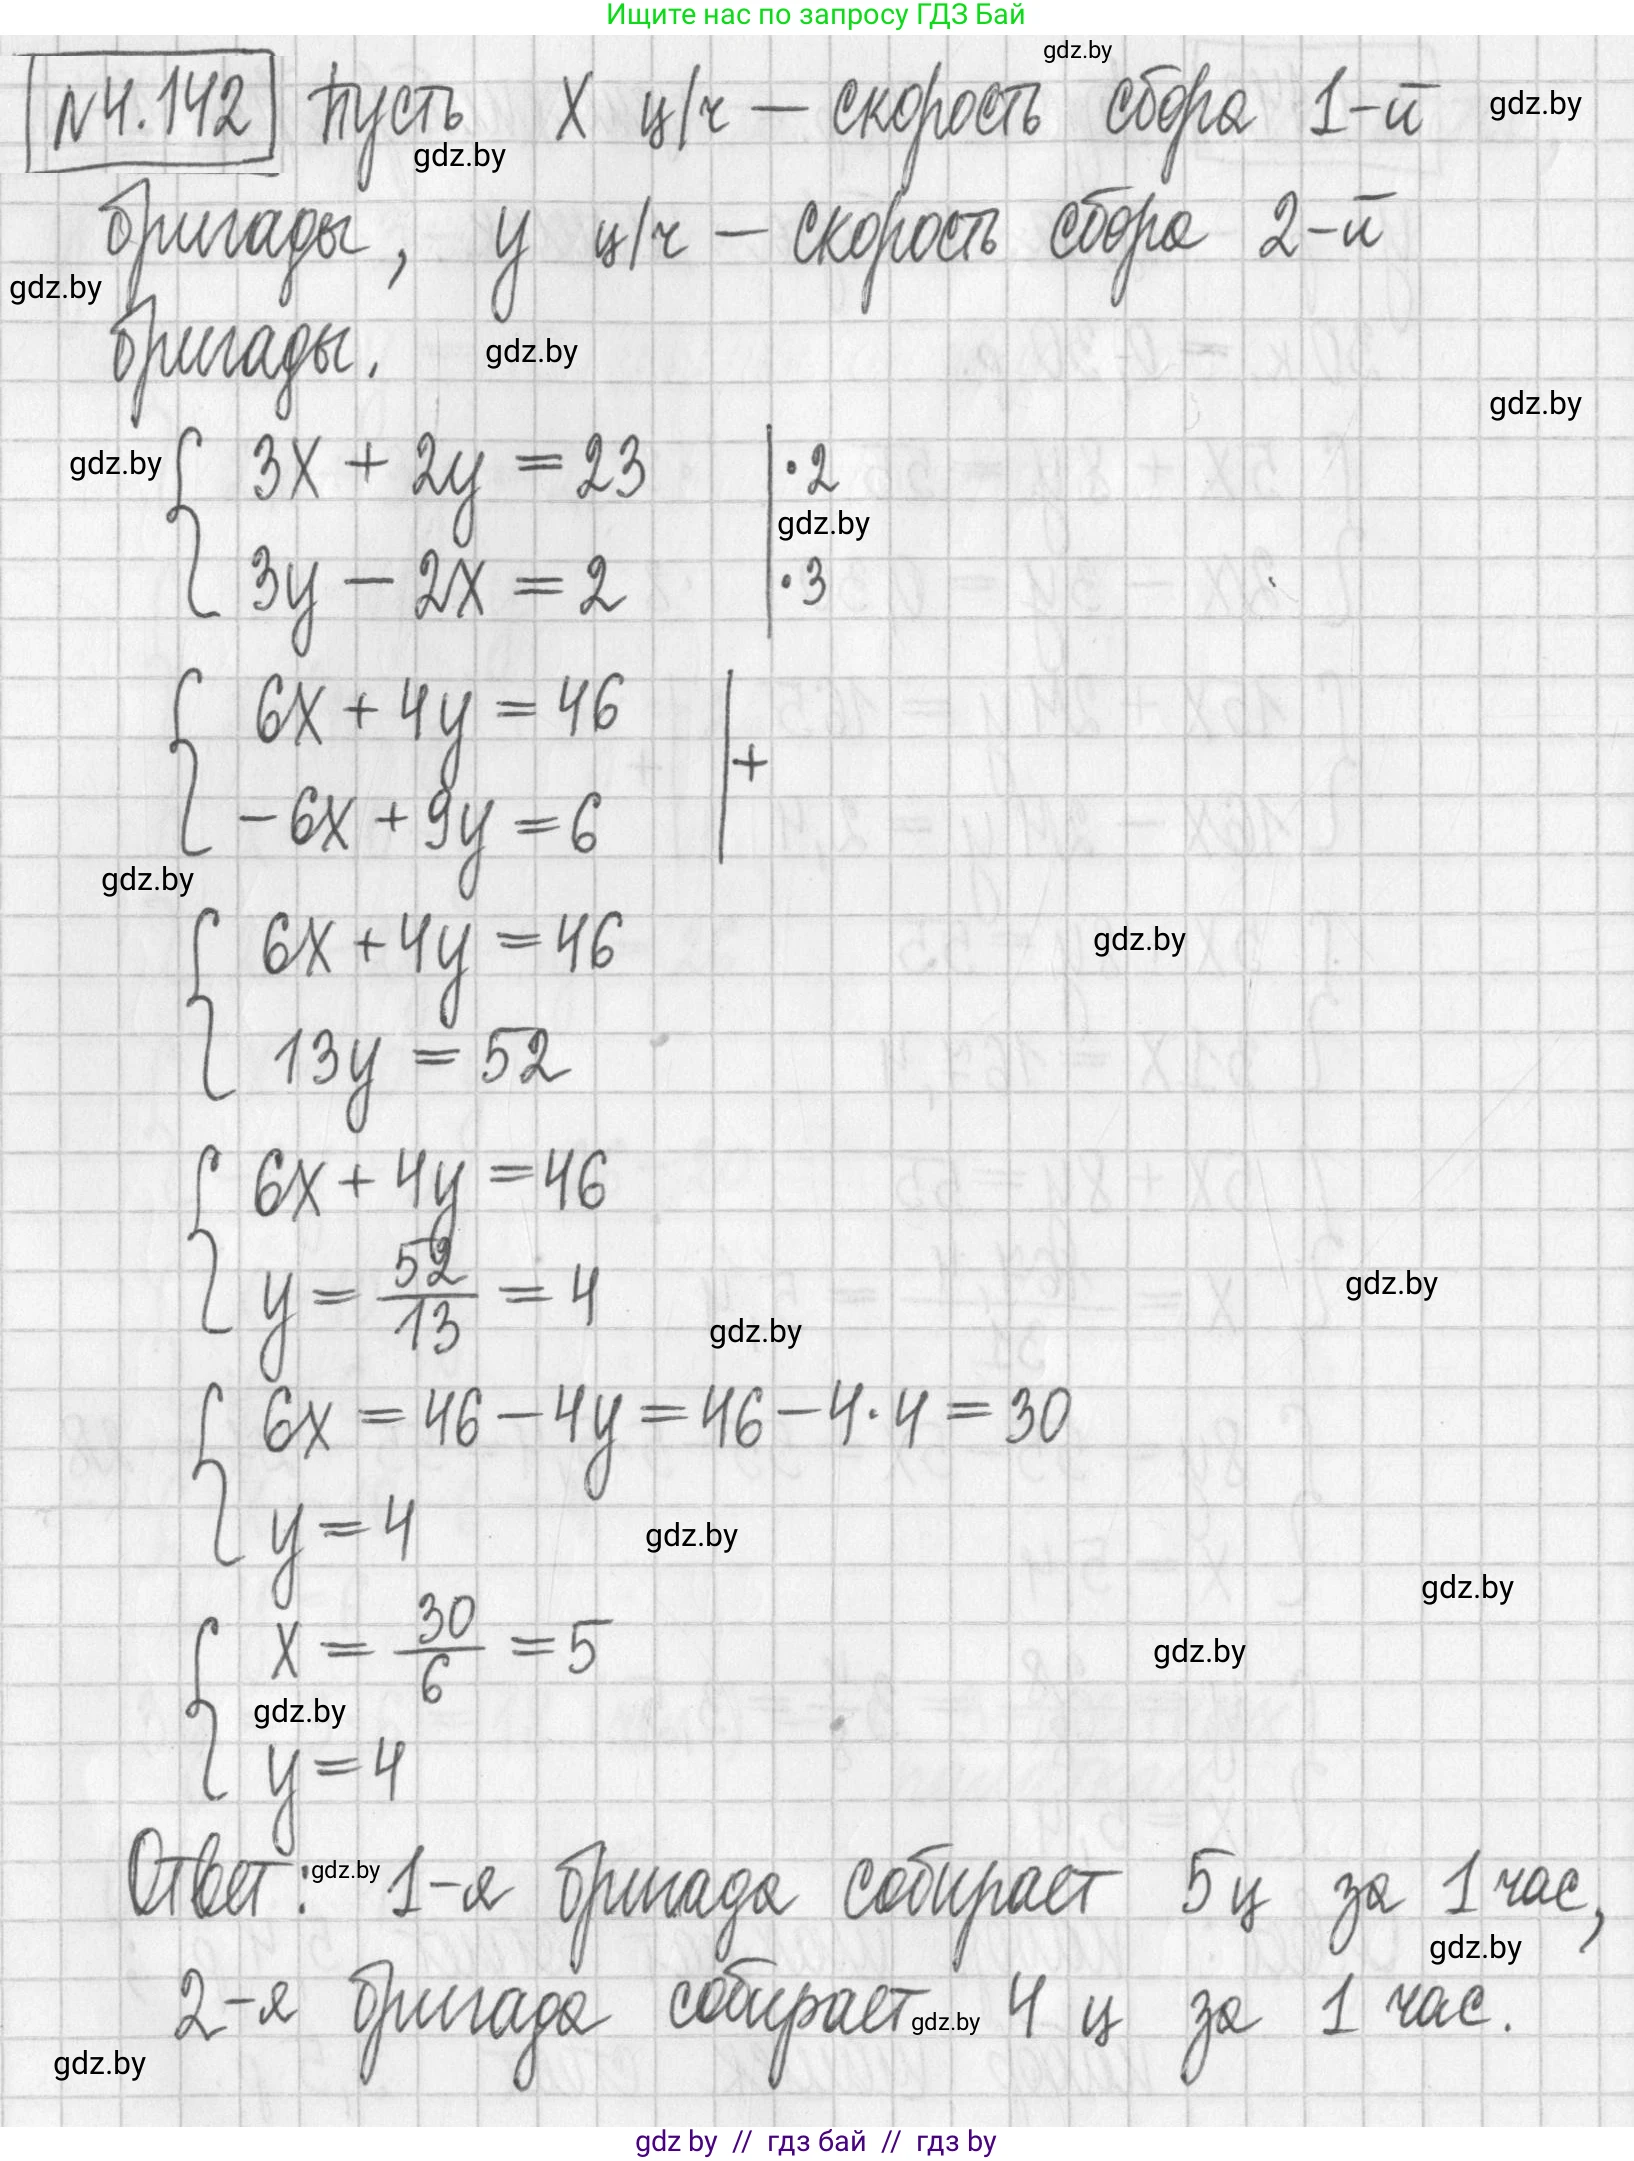 Ищите нас по запросу ГДЗ Бай
gdz.by
№4.142 Пусть x ц/ч — скорость сбора 1-й gdz.by
gdz.by
бригады, y ц/ч — скорость сбора 2-й
gdz.by
бригады. gdz.by
gdz.by
gdz.by { 3x + 2y = 23 | ·2
gdz.by
3y − 2x = 2 | ·3
{ 6x + 4y = 46 | +
−6x + 9y = 6
gdz.by
{ 6x + 4y = 46 gdz.by
13y = 52
{ 6x + 4y = 46
y = 52/13 = 4 gdz.by
gdz.by
{ 6x = 46 − 4y = 46 − 4·4 = 30
y = 4 gdz.by
gdz.by
{ x = 30/6 = 5 gdz.by
gdz.by
y = 4
Ответ: gdz.by 1-я бригада собирает 5ц за 1 час,
gdz.by
2-я бригада собирает gdz.by 4 ц за 1 час.
gdz.by
gdz by // гдз бай // гдз by